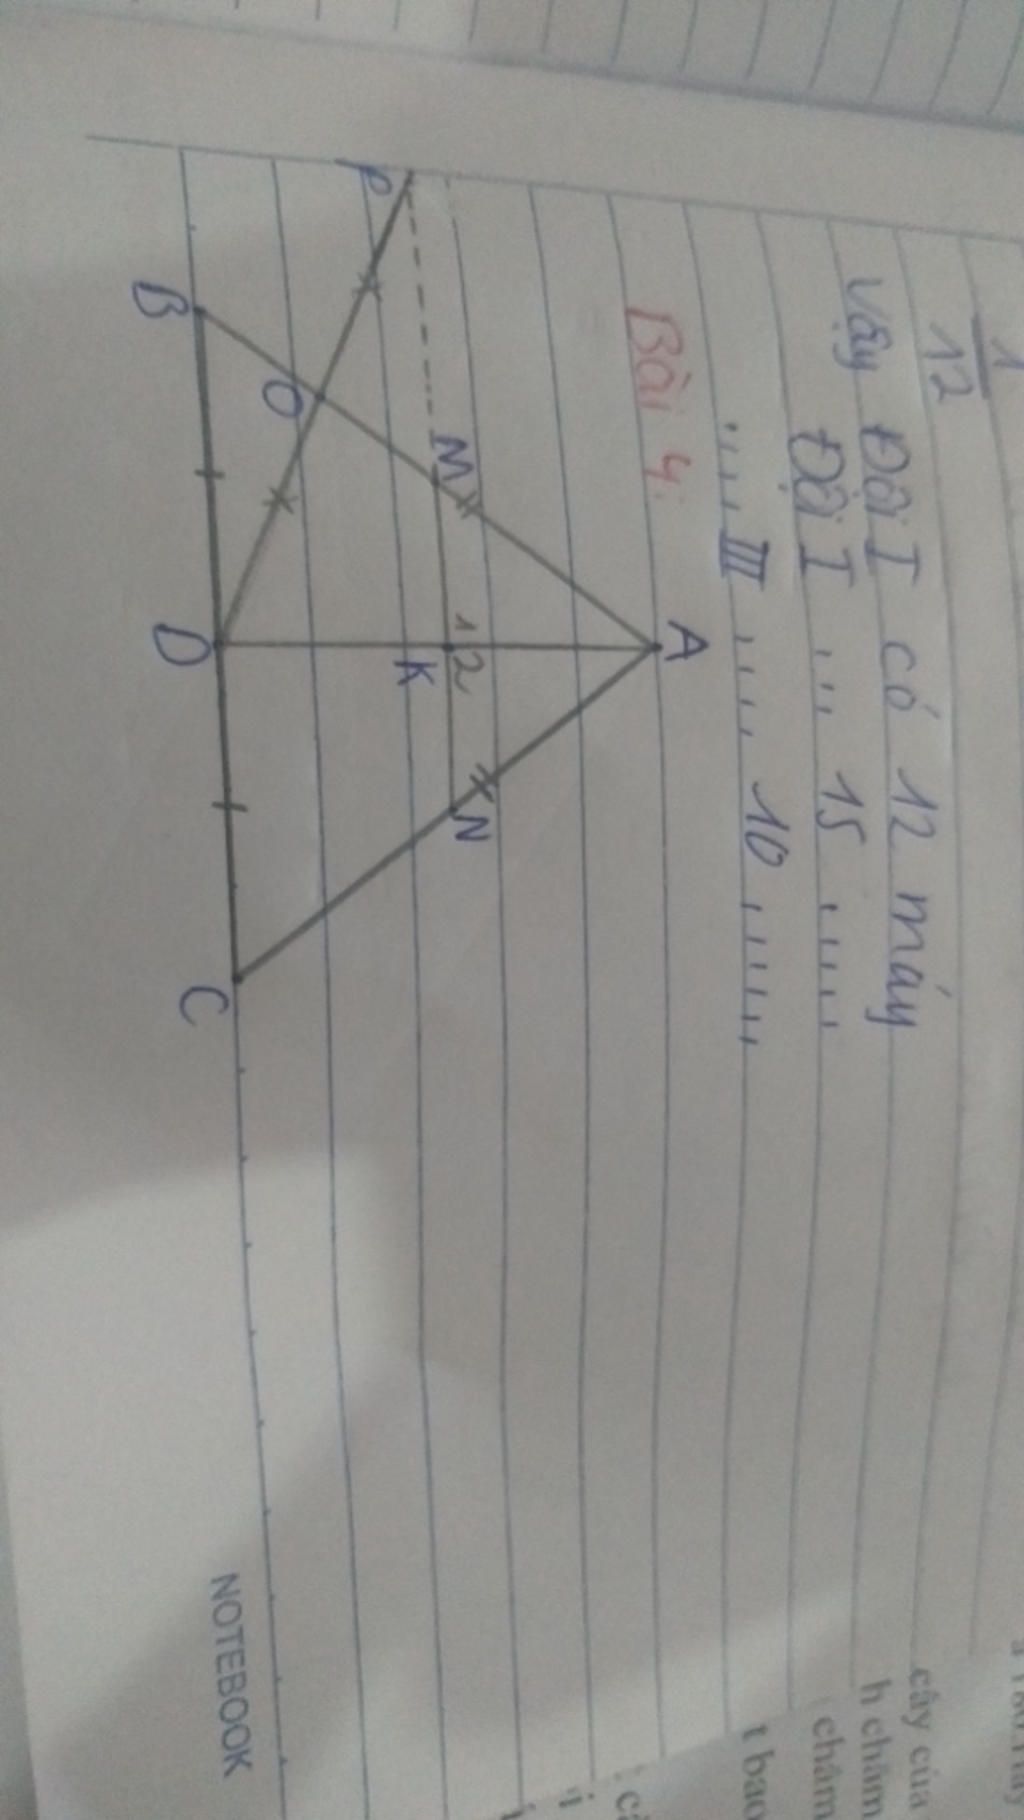 1
12
Vậy Đội I có 12 máy
Đội I ... 15 .....
.... III ..... 10 ......
Bài 4:
A
M
N
1 2
K
P
O
B
D
C
NOTEBOOK
cây của
h chăm
chăm
t bao